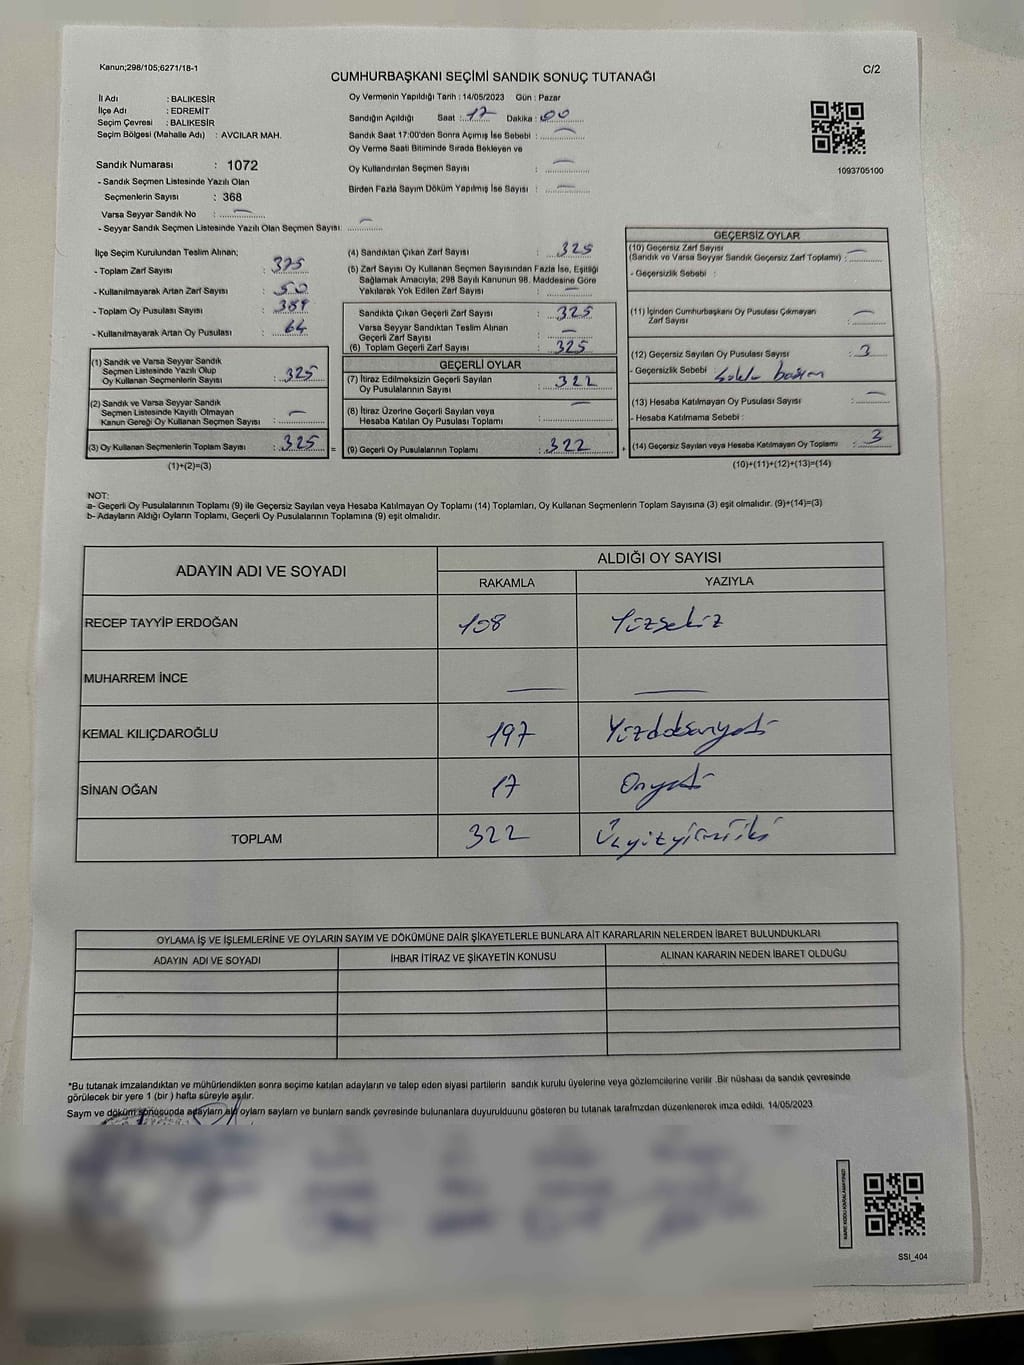 Kanun;298/105;6271/18-1
C/2
CUMHURBAŞKANI SEÇİMİ SANDIK SONUÇ TUTANAĞI
İl Adı : BALIKESİR
İlçe Adı : EDREMİT
Seçim Çevresi : BALIKESİR
Seçim Bölgesi (Mahalle Adı) : AVCILAR MAH.
Sandık Numarası : 1072
- Sandık Seçmen Listesinde Yazılı Olan
Seçmenlerin Sayısı : 368
Varsa Seyyar Sandık No : —
- Seyyar Sandık Seçmen Listesinde Yazılı Olan Seçmen Sayısı: —
Oy Vermenin Yapıldığı Tarih : 14/05/2023 Gün : Pazar
Sandığın Açıldığı Saat : 17 Dakika : 00
Sandık Saat 17:00'den Sonra Açımış İse Sebebi : —
Oy Verme Saati Bitiminde Sırada Bekleyen ve
Oy Kullandırılan Seçmen Sayısı : —
Birden Fazla Sayım Döküm Yapılmış İse Sayısı : —
1093705100
İlçe Seçim Kurulundan Teslim Alınan;
- Toplam Zarf Sayısı : 375
- Kullanılmayarak Artan Zarf Sayısı : 50
- Toplam Oy Pusulası Sayısı : 389
- Kullanılmayarak Artan Oy Pusulası : 64
(1) Sandık ve Varsa Seyyar Sandık
Seçmen Listesinde Yazılı Olup
Oy Kullanan Seçmenlerin Sayısı : 325
(2) Sandık ve Varsa Seyyar Sandık
Seçmen Listesinde Kayıtlı Olmayan
Kanun Gereği Oy Kullanan Seçmen Sayısı : —
(3) Oy Kullanan Seçmenlerin Toplam Sayısı : 325 =
(1)+(2)=(3)
(4) Sandıktan Çıkan Zarf Sayısı : 325
(5) Zarf Sayısı Oy Kullanan Seçmen Sayısından Fazla İse, Eşitliği
Sağlamak Amacıyla; 298 Sayılı Kanunun 98. Maddesine Göre
Yakılarak Yok Edilen Zarf Sayısı : —
Sandıkta Çıkan Geçerli Zarf Sayısı : 325
Varsa Seyyar Sandıktan Teslim Alınan
Geçerli Zarf Sayısı : —
(6) Toplam Geçerli Zarf Sayısı : 325
GEÇERLİ OYLAR
(7) İtiraz Edilmeksizin Geçerli Sayılan
Oy Pusulalarının Sayısı : 322
(8) İtiraz Üzerine Geçerli Sayılan veya
Hesaba Katılan Oy Pusulası Toplamı : —
(9) Geçerli Oy Pusulalarının Toplamı : 322 +
GEÇERSİZ OYLAR
(10) Geçersiz Zarf Sayısı
(Sandık ve Varsa Seyyar Sandık Geçersiz Zarf Toplamı) : —
- Geçersizlik Sebebi :
(11) İçinden Cumhurbaşkanı Oy Pusulası Çıkmayan
Zarf Sayısı : —
(12) Geçersiz Sayılan Oy Pusulası Sayısı : 3
- Geçersizlik Sebebi
(13) Hesaba Katılmayan Oy Pusulası Sayısı : —
- Hesaba Katılmama Sebebi :
(14) Geçersiz Sayılan veya Hesaba Katılmayan Oy Toplamı : 3
(10)+(11)+(12)+(13)=(14)
NOT:
a- Geçerli Oy Pusulalarının Toplamı (9) ile Geçersiz Sayılan veya Hesaba Katılmayan Oy Toplamı (14) Toplamları, Oy Kullanan Seçmenlerin Toplam Sayısına (3) eşit olmalıdır. (9)+(14)=(3)
b- Adayların Aldığı Oyların Toplamı, Geçerli Oy Pusulalarının Toplamına (9) eşit olmalıdır.
ADAYIN ADI VE SOYADI ALDIĞI OY SAYISI
RAKAMLA YAZIYLA
RECEP TAYYİP ERDOĞAN 108 Yüzsekiz
MUHARREM İNCE — —
KEMAL KILIÇDAROĞLU 197 Yüzdoksanyedi
SİNAN OĞAN 17 Onyedi
TOPLAM 322 Üçyüzyirmiiki
OYLAMA İŞ VE İŞLEMLERİNE VE OYLARIN SAYIM VE DÖKÜMÜNE DAİR ŞİKAYETLERLE BUNLARA AİT KARARLARIN NELERDEN İBARET BULUNDUKLARI
ADAYIN ADI VE SOYADI İHBAR İTİRAZ VE ŞİKAYETİN KONUSU ALINAN KARARIN NEDEN İBARET OLDUĞU
*Bu tutanak imzalandıktan ve mühürlendikten sonra seçime katılan adayların ve talep eden siyasi partilerin sandık kurulu üyelerine veya gözlemcilerine verilir .Bir nüshası da sandık çevresinde
görülecek bir yere 1 (bir ) hafta süreyle asılır.
Sayım ve döküm sonusunda adayların ald oyların sayların ve bunların sandk çevresinde bulunanlara duyurulduunu gösteren bu tutanak tarafmzdan düzenlenerek imza edildi. 14/05/2023
KARE KODU KARALAMAYINIZ!
SSI_404